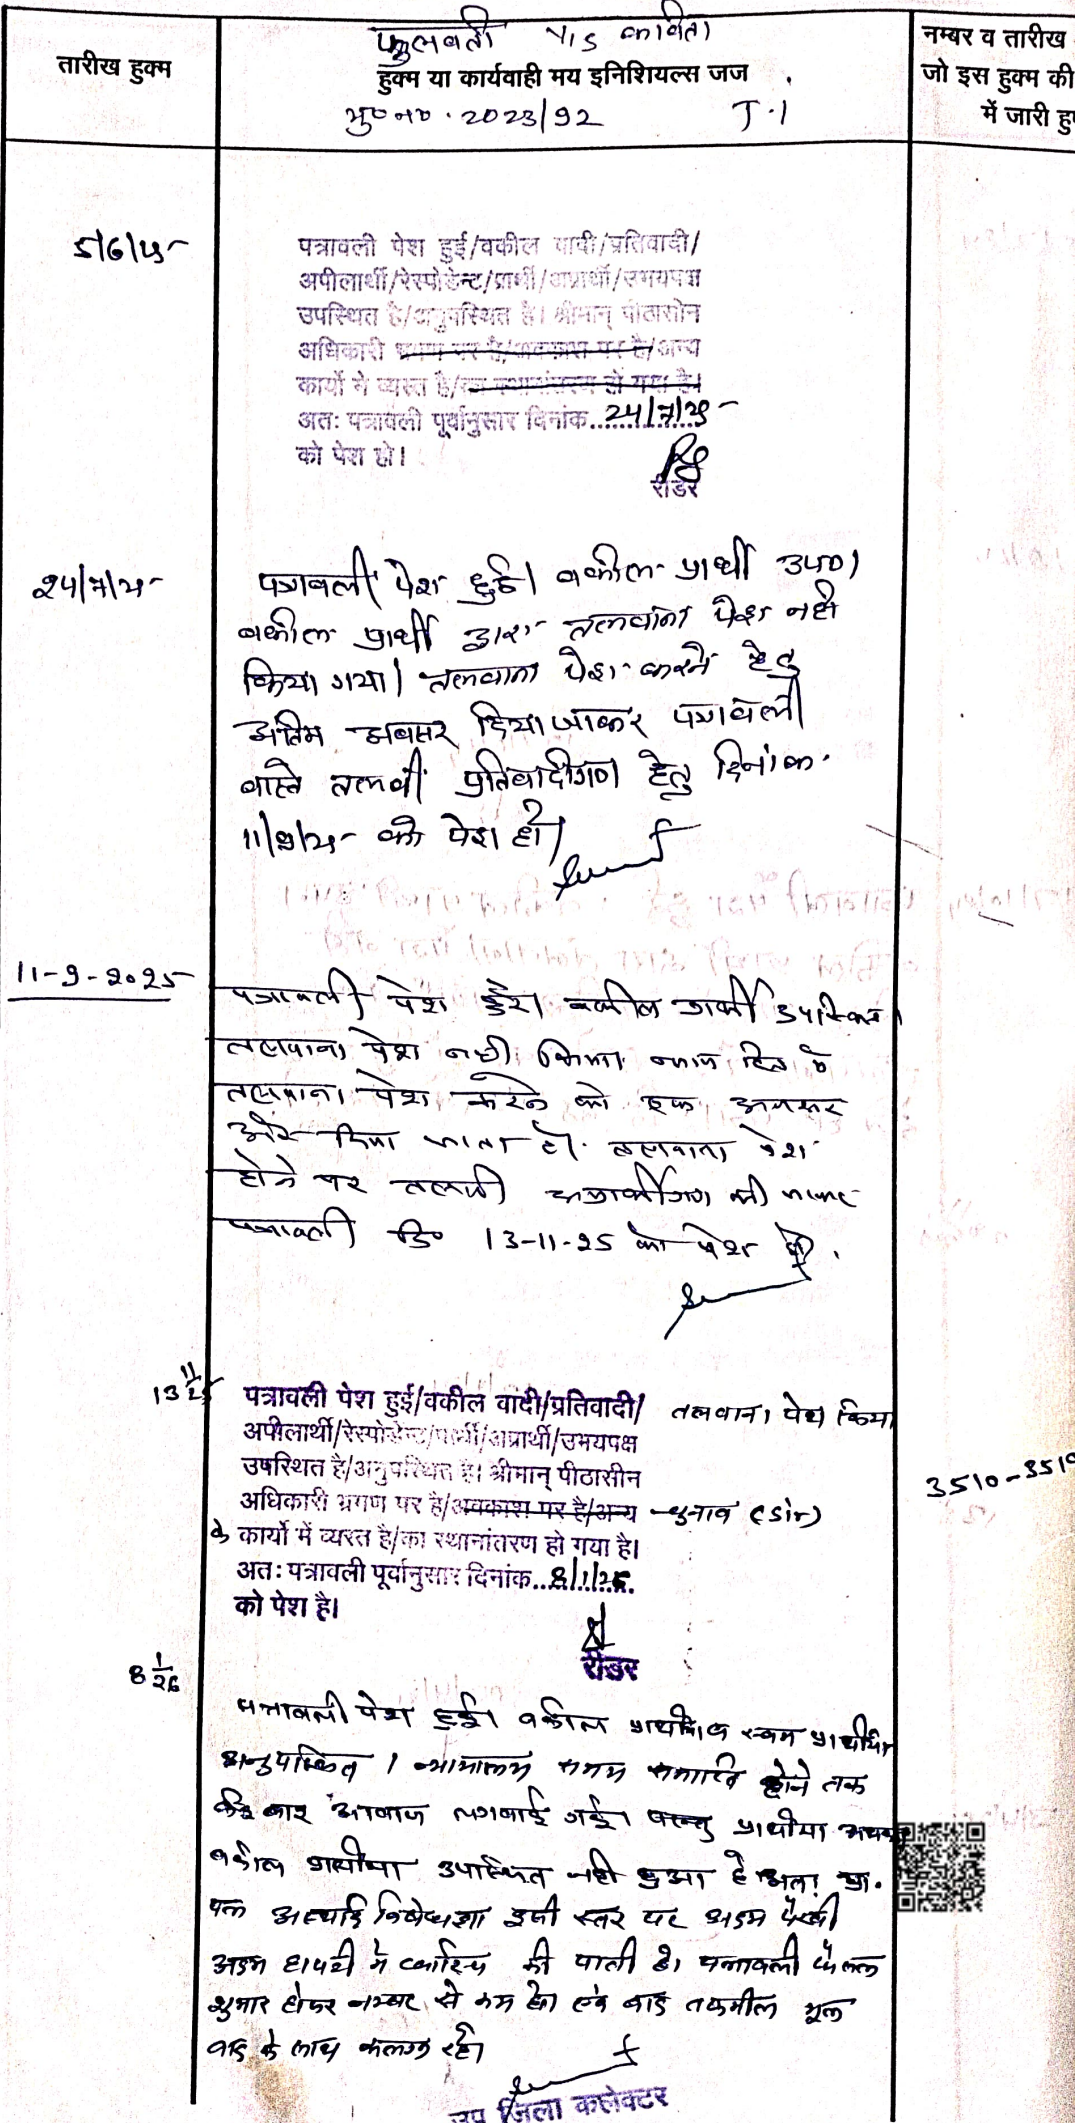 फुलवती V/S कविता
तारीख हुक्म
हुक्म या कार्यवाही मय इनिशियल्स जज
मु०न० . 2023/92 T.I
नम्बर व तारीख
जो इस हुक्म की
में जारी हु
5/6/25
पत्रावली पेश हुई/वकील वादी/प्रतिवादी/
अपीलार्थी/रेस्पोडेन्ट/प्रार्थी/अप्रार्थी/उभयपक्ष
उपस्थित है/अनुपस्थित है। श्रीमान् पीठासीन
अधिकारी भ्रमण पर है/अवकाश पर है/अन्य
कार्यो मे व्यस्त है/का स्थानांतरण हो गया है।
अतः पत्रावली पूर्वानुसार दिनांक..24/7/25
को पेश हो।
रीडर
24/7/25
पत्रावली पेश हुई। वकील प्रार्थी उप०।
वकील प्रार्थी द्वारा तलवाना पेश नही
किया गया। तलवाना पेश करने हेतु
अंतिम अवसर दिया जाकर पत्रावली
वास्ते तलबी प्रतिवादीगण हेतु दिनांक
11/9/25 को पेश हो।
11-9-2025
पत्रावली पेश हुई। वकील प्रार्थी उपस्थित।
तलवाना पेश नही किया न्याय हित मे
तलवाना पेश करने को एक अवसर
और दिया जाता है। तलवाना पेश
होने पर तलबी अप्रार्थीगण की जावे
पत्रावली दि० 13-11-25 को पेश हो.
13 11/25
पत्रावली पेश हुई/वकील वादी/प्रतिवादी/ तलवाना पेश किया
अपीलार्थी/रेस्पोडेन्ट/प्रार्थी/अप्रार्थी/उभयपक्ष
उपस्थित है/अनुपस्थित है। श्रीमान् पीठासीन
अधिकारी भ्रमण पर है/अवकाश पर है/अन्य चुनाव (SIr)
के कार्यो में व्यस्त है/का स्थानांतरण हो गया है।
अतः पत्रावली पूर्वानुसार दिनांक...8/1/26
को पेश है।
रीडर
3510-3519
8 1/26
पत्रावली पेश हुई। वकील प्रार्थीया व स्वयं प्रार्थीया
अनुपस्थित। न्यायालय समय समाप्ति होने तक
कई बार आवाज लगवाई गई। परन्तु प्रार्थीया अथवा
वकील प्रार्थीया उपस्थित नही हुआ है अतः प्रा.
पत्र अस्थाई निषेधाज्ञा इसी स्तर पर अदम पैरवी
अदम हाजरी मे खारिज की जाती है। पत्रावली फैसल
शुमार होकर नम्बर से कम हो एवं बाद तकमील मूल
वाद के साथ संलग्न रहे।
उप जिला कलेक्टर